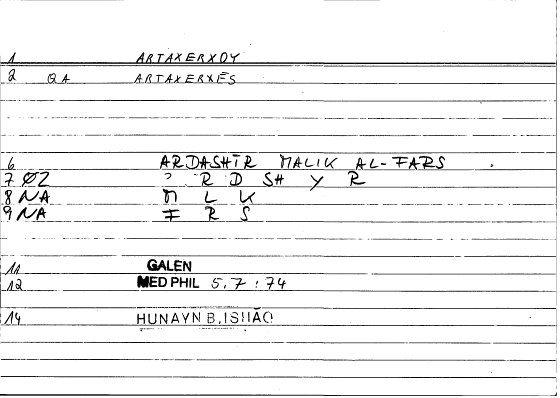 1 ARTAXERXOY
2 QA ARTAXERXĒS
6 ARDASHĪR MALIK AL-FARS .
7 ØZ ʾ R D SH Y R
8 NA M L K
9 NA F R S
11 GALEN
12 MED PHIL 5.7 : 74
14 ḤUNAYN B. ISḤĀQ